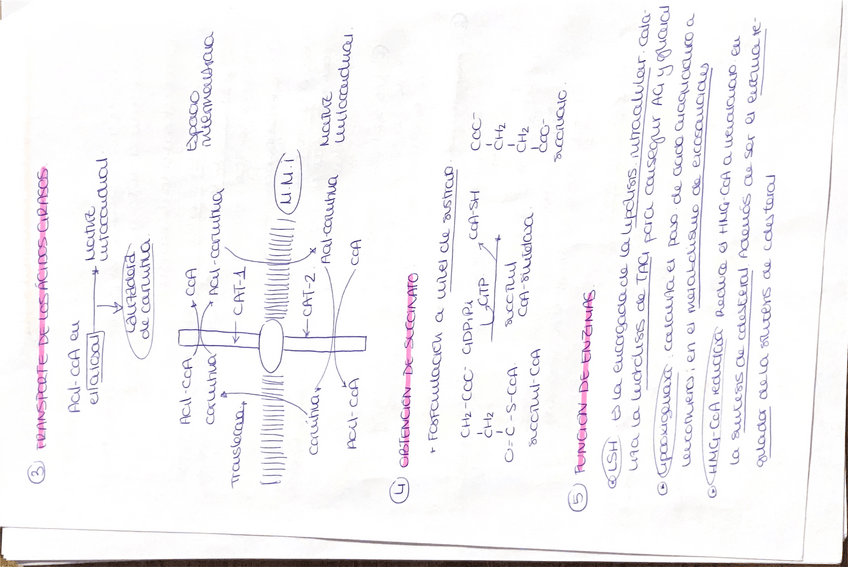 ③ TRANSPORTE DE LOS ÁCIDOS GRASOS
Acil-CoA en
el citosol
Matriz
mitocondrial
Lanzadera
de carnitina
Acil-CoA
CoA
Espacio
intermembrana
carnitina
Acil-carnitina
Translocasa
CAT-1
M.M.I
CAT-2
carnitina
Acil-carnitina
Matriz
mitocondrial
Acil-CoA
CoA
④ OBTENCIÓN DE SUCCINATO
+ Fosforilación a nivel de sustrato.
CH₂-COO⁻ GDP+Pi
CoA-SH
COO⁻
CH₂
GTP
CH₂
O=C-S-CoA
succinil
CH₂
succinil-CoA
CoA-sintetasa
COO⁻
succinato.
⑤ FUNCIÓN DE ENZIMAS
LSH Es la encargada de la lipólisis intracelular. Cata-
liza la hidrólisis de TAG para conseguir AG y glicerol
Lipooxigenasa: cataliza el paso de ácido araquidónico a
leucotrieno; en el metabolismo de eicosanoides
HMG-CoA reductasa Reduce el HMG-CoA a mevalonato en
la síntesis de colesterol. Además de ser el enzima re-
gulador de la síntesis de colesterol